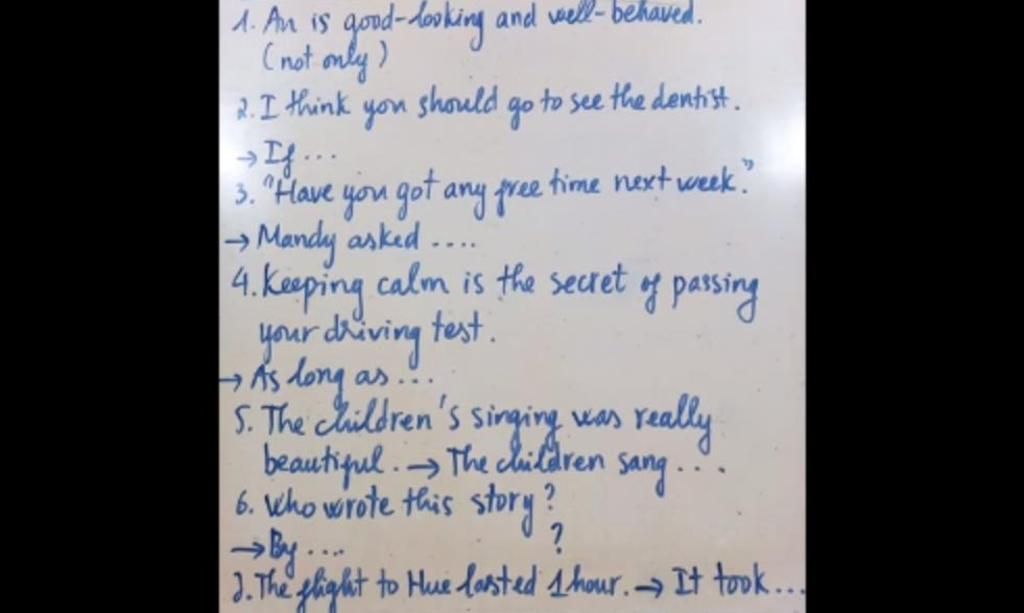 1. An is good-looking and well-behaved.
(not only)
2. I think you should go to see the dentist.
→ If ...
3. "Have you got any free time next week."
→ Mandy asked ....
4. Keeping calm is the secret of passing
your driving test.
→ As long as ...
5. The children's singing was really
beautiful. → The children sang ...
6. Who wrote this story?
→ By .... ?
7. The flight to Hue lasted 1 hour. → It took...